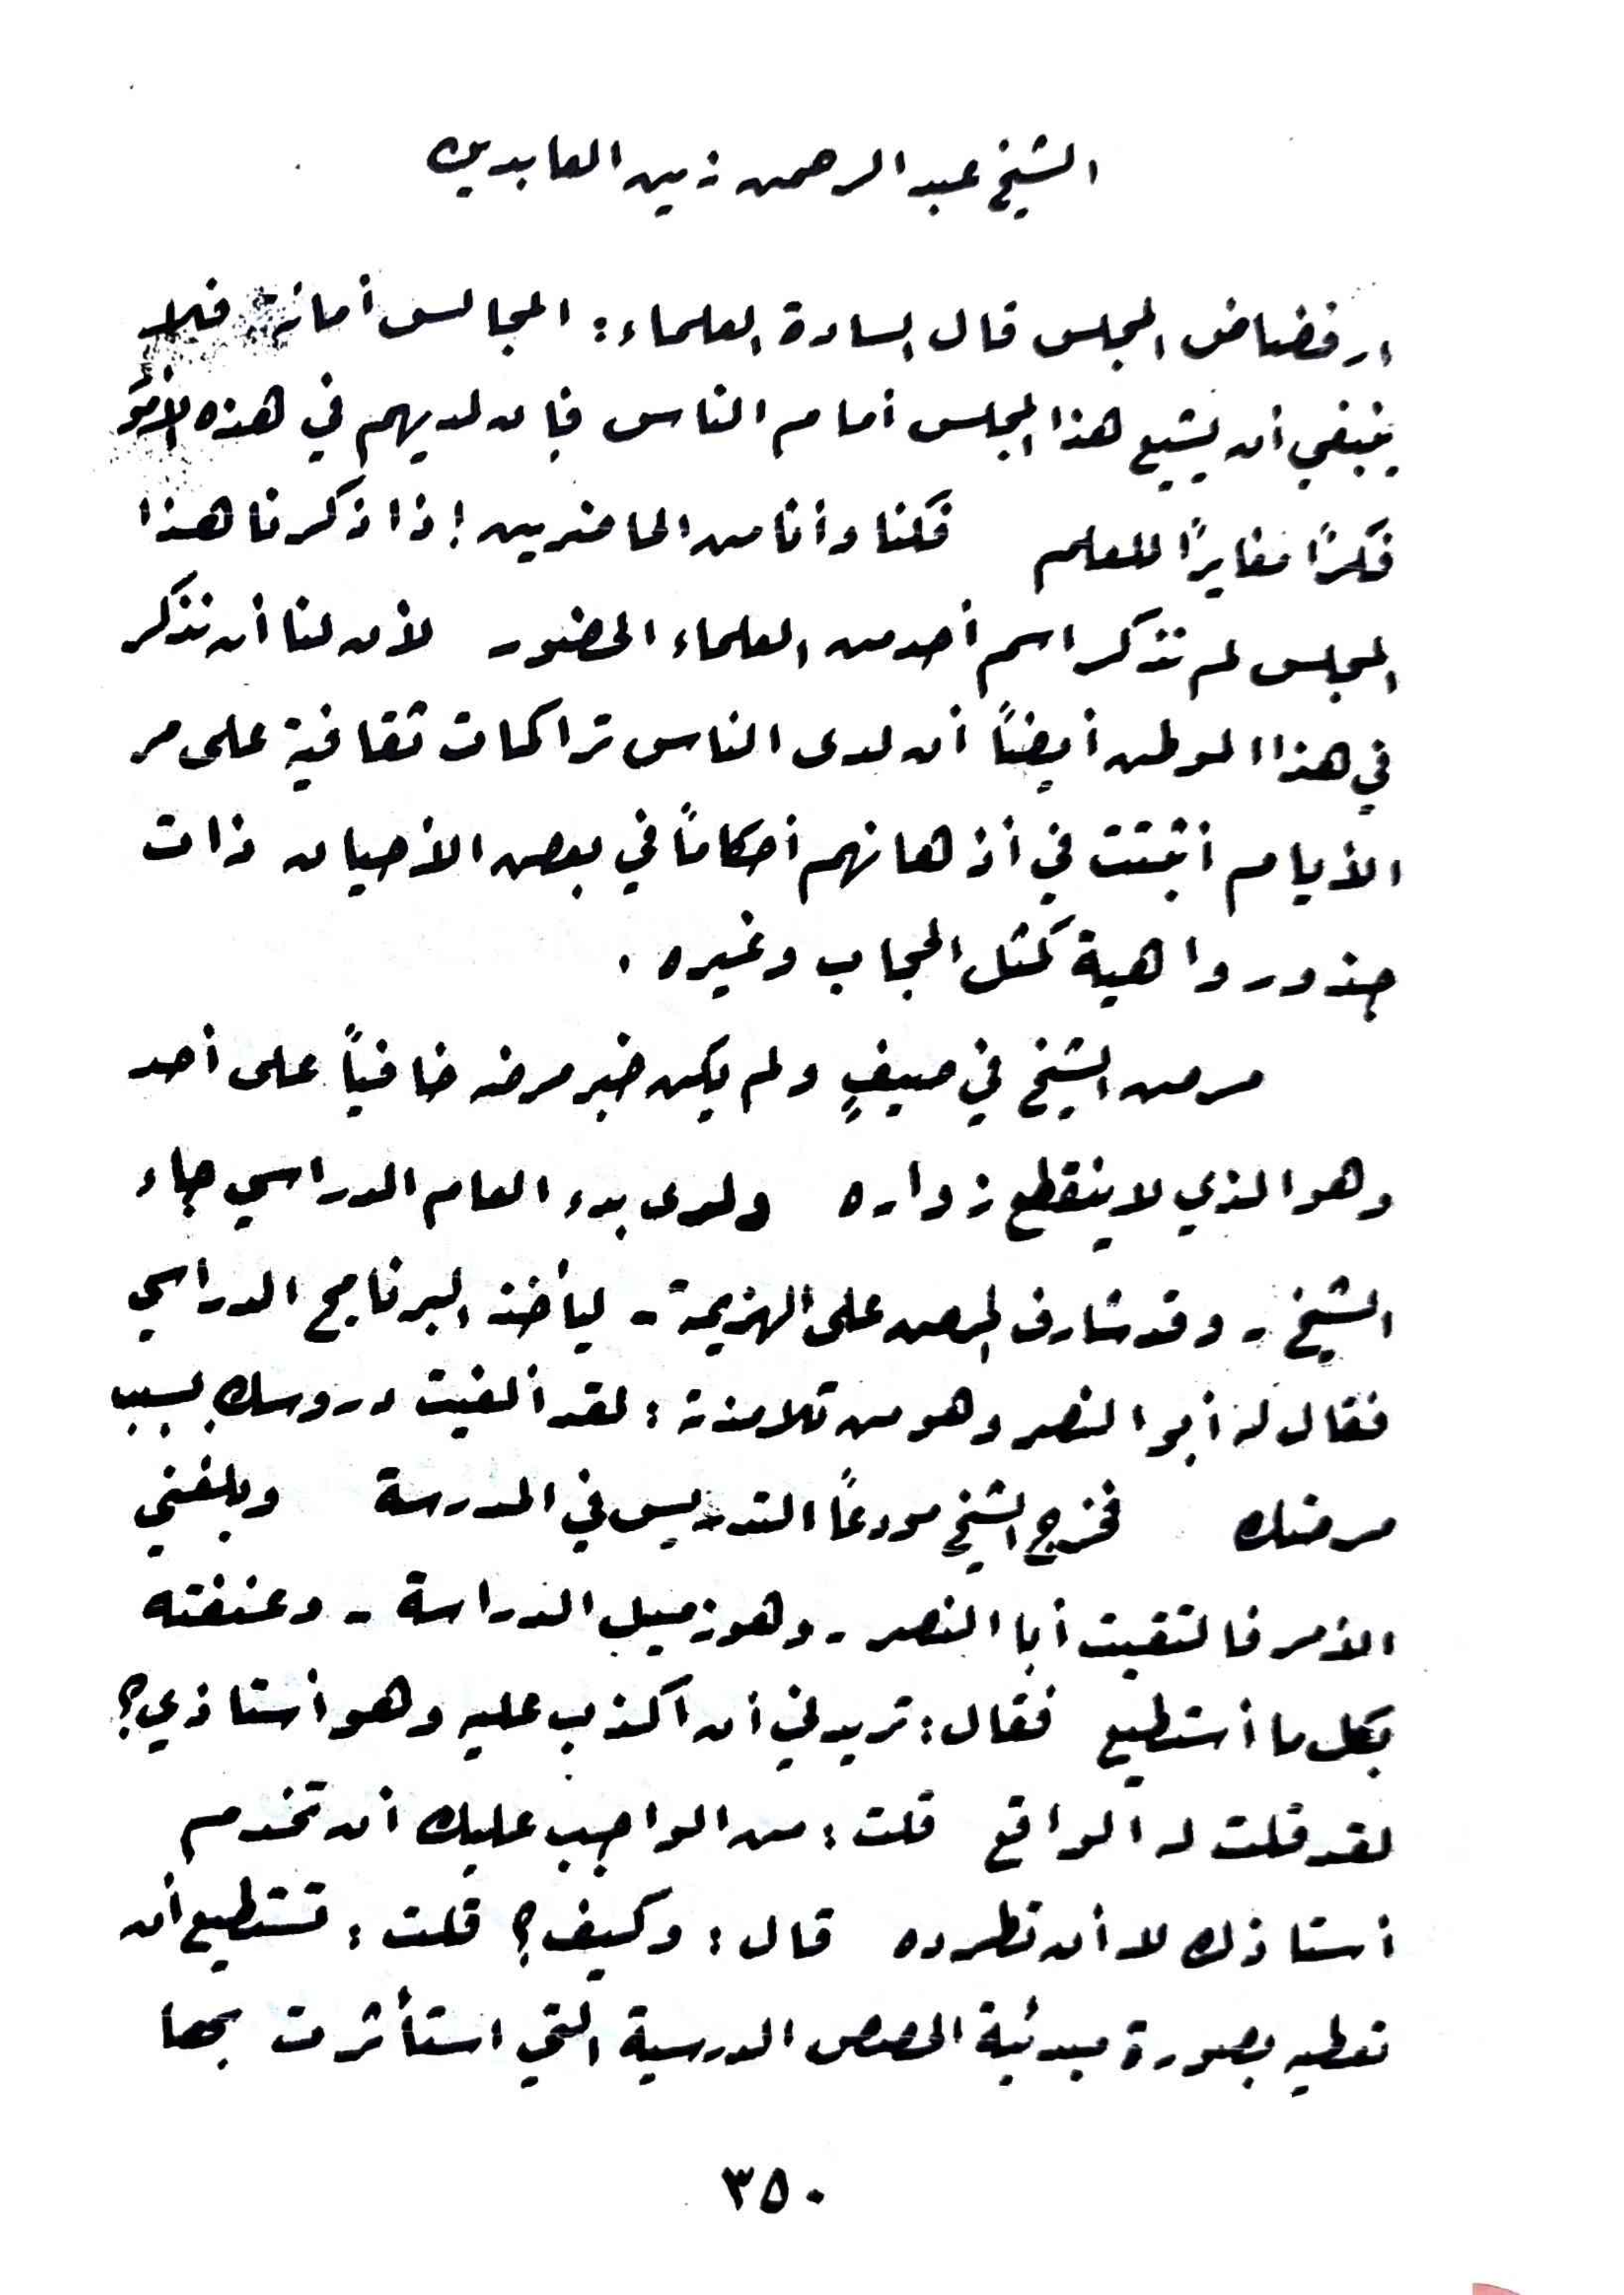 الشيخ عبد الرحمن زين العابدين
ارفضاض المجلس قال السادة العلماء: المجالس أمانة فلا
ينبغي أن يشيع هذا المجلس أمام الناس فإن لديهم في هذه الأمور
فكرًا مغايرًا للعلم فكنا وأنا من الحاضرين إذا ذكرنا هذا
المجلس لم نذكر اسم أحد من العلماء الحضور لأن لنا أن نذكر
في هذا الموطن أيضاً أن لدى الناس تراكمات ثقافية على مر
الأيام أثبتت في أذهانهم أحكاماً في بعض الأحيان ذات
جذور واهية كمثل الحجاب وغيره .
مرض الشيخ في صيفٍ ولم يكن خبر مرضه خافياً على أحد
وهو الذي لا ينقطع زواره ولدى بدء العام الدراسي جاء
الشيخ - وقد شارف المرض على الهزيمة - ليأخذ البرنامج الدراسي
فقال له أبو النصر وهو من تلامذته : لقد ألغيت دروسك بسبب
مرضك فخرج الشيخ مودعاً التدريس في المدرسة وبلغني
الأمر فالتقيت أبا النصر - وهو زميل الدراسة - وعنفته
بكل ما أستطيع فقال : تريدني أن أكذب عليه وهو أستاذي؟
لقد قلت له الواقع قلت : من الواجب عليك أن تخدم
أستاذك لا أن تطرده قال : وكيف؟ قلت : تستطيع أن
تعطيه بصورة مبدئية الحصص الدرسية التي استأثرت بها
٣٥٠